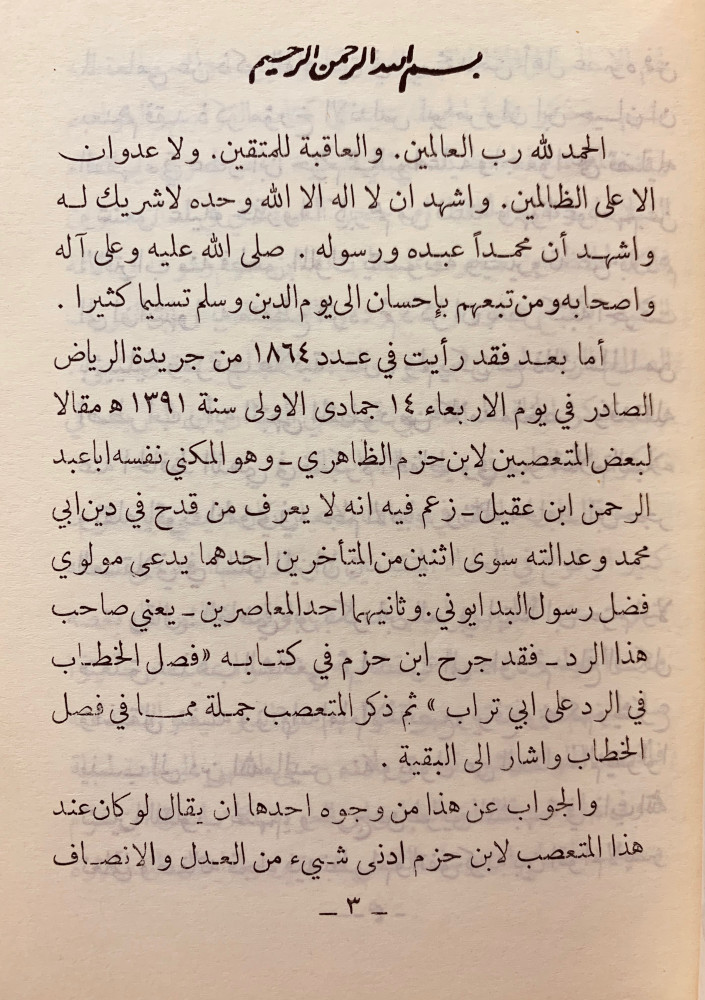 بسم الله الرحمن الرحيم
الحمد لله رب العالمين. والعاقبة للمتقين. ولا عدوان
الا على الظالمين. واشهد ان لا اله الا الله وحده لاشريك له
واشهد أن محمداً عبده ورسوله . صلى الله عليه وعلى آله
واصحابه ومن تبعهم بإحسان الى يوم الدين وسلم تسليما كثيرا .
أما بعد فقد رأيت في عدد ١٨٦٤ من جريدة الرياض
الصادر في يوم الاربعاء ١٤ جمادى الاولى سنة ١٣٩١ ه مقالا
لبعض المتعصبين لابن حزم الظاهري ـ وهو المكني نفسه اباعبد
الرحمن ابن عقيل ـ زعم فيه انه لا يعرف من قدح في دين ابي
محمد وعدالته سوى اثنين من المتأخرين احدهما يدعى مولوي
فضل رسول البدايوني . وثانيهما احد المعاصرين ـ يعني صاحب
هذا الرد ـ فقد جرح ابن حزم في كتابه «فصل الخطاب
في الرد على ابي تراب » ثم ذكر المتعصب جملة مما في فصل
الخطاب واشار الى البقية .
والجواب عن هذا من وجوه احدها ان يقال لو كان عند
هذا المتعصب لابن حزم ادنى شيىء من العدل والانصاف
ـ ٣ ـ